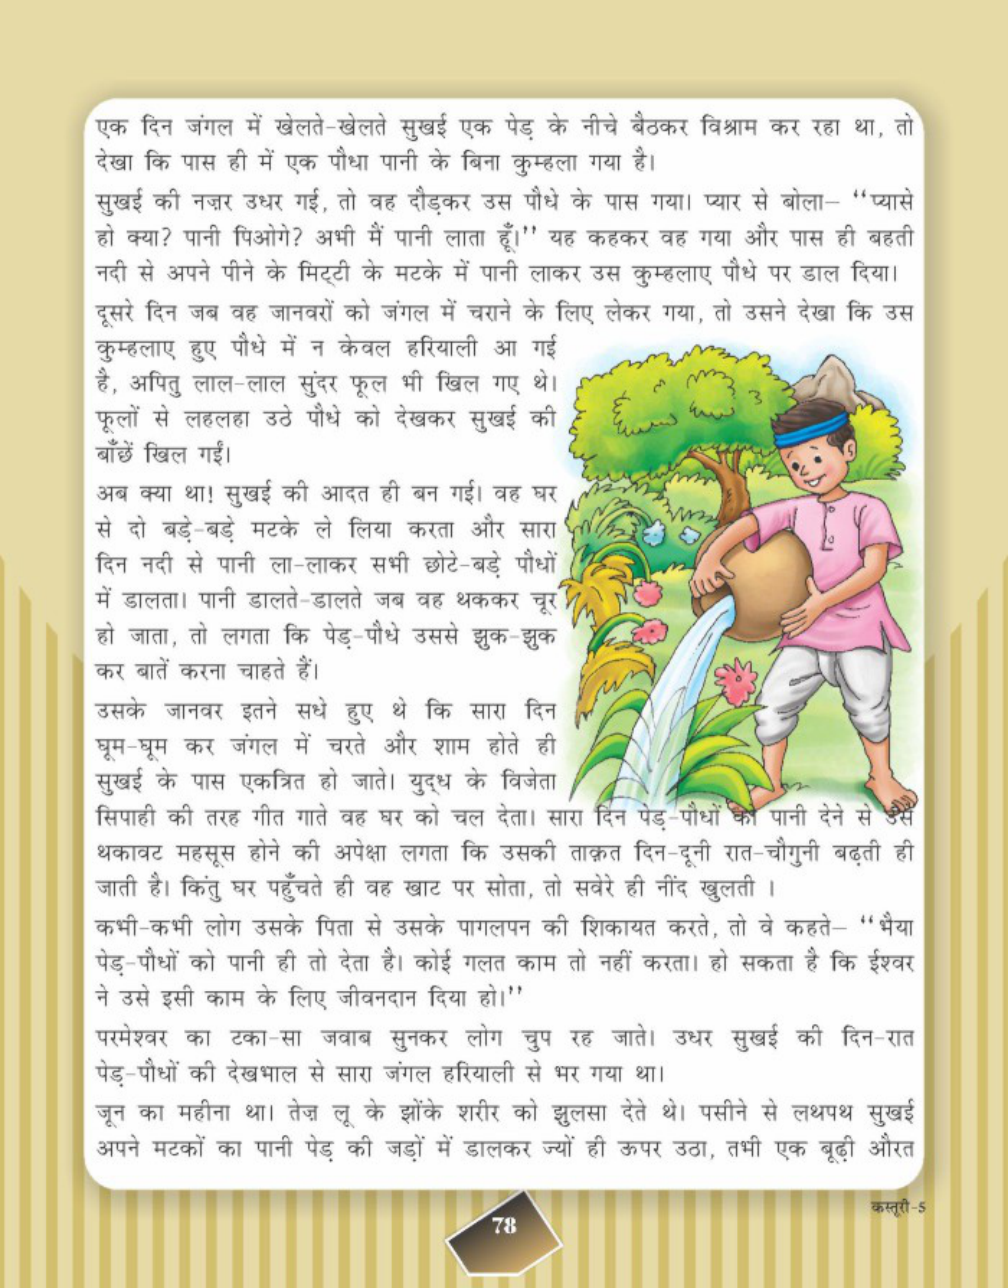 एक दिन जंगल में खेलते-खेलते सुखई एक पेड़ के नीचे बैठकर विश्राम कर रहा था, तो
देखा कि पास ही में एक पौधा पानी के बिना कुम्हला गया है।
सुखई की नज़र उधर गई, तो वह दौड़कर उस पौधे के पास गया। प्यार से बोला– ‘‘प्यासे
हो क्या? पानी पिओगे? अभी मैं पानी लाता हूँ।’’ यह कहकर वह गया और पास ही बहती
नदी से अपने पीने के मिट्टी के मटके में पानी लाकर उस कुम्हलाए पौधे पर डाल दिया।
दूसरे दिन जब वह जानवरों को जंगल में चराने के लिए लेकर गया, तो उसने देखा कि उस
कुम्हलाए हुए पौधे में न केवल हरियाली आ गई
है, अपितु लाल-लाल सुंदर फूल भी खिल गए थे।
फूलों से लहलहा उठे पौधे को देखकर सुखई की
बाँछें खिल गईं।
अब क्या था! सुखई की आदत ही बन गई। वह घर
से दो बड़े-बड़े मटके ले लिया करता और सारा
दिन नदी से पानी ला-लाकर सभी छोटे-बड़े पौधों
में डालता। पानी डालते-डालते जब वह थककर चूर
हो जाता, तो लगता कि पेड़-पौधे उससे झुक-झुक
कर बातें करना चाहते हैं।
उसके जानवर इतने सधे हुए थे कि सारा दिन
घूम-घूम कर जंगल में चरते और शाम होते ही
सुखई के पास एकत्रित हो जाते। युद्ध के विजेता
सिपाही की तरह गीत गाते वह घर को चल देता। सारा दिन पेड़-पौधों को पानी देने से उसे
थकावट महसूस होने की अपेक्षा लगता कि उसकी ताक़त दिन-दूनी रात-चौगुनी बढ़ती ही
जाती है। किंतु घर पहुँचते ही वह खाट पर सोता, तो सवेरे ही नींद खुलती ।
कभी-कभी लोग उसके पिता से उसके पागलपन की शिकायत करते, तो वे कहते– ‘‘भैया
पेड़-पौधों को पानी ही तो देता है। कोई गलत काम तो नहीं करता। हो सकता है कि ईश्वर
ने उसे इसी काम के लिए जीवनदान दिया हो।’’
परमेश्वर का टका-सा जवाब सुनकर लोग चुप रह जाते। उधर सुखई की दिन-रात
पेड़-पौधों की देखभाल से सारा जंगल हरियाली से भर गया था।
जून का महीना था। तेज़ लू के झोंके शरीर को झुलसा देते थे। पसीने से लथपथ सुखई
अपने मटकों का पानी पेड़ की जड़ों में डालकर ज्यों ही ऊपर उठा, तभी एक बूढ़ी औरत
कस्तूरी-5
78